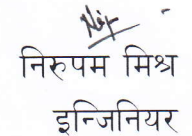 निरुपम मिश्र
इन्जिनियर